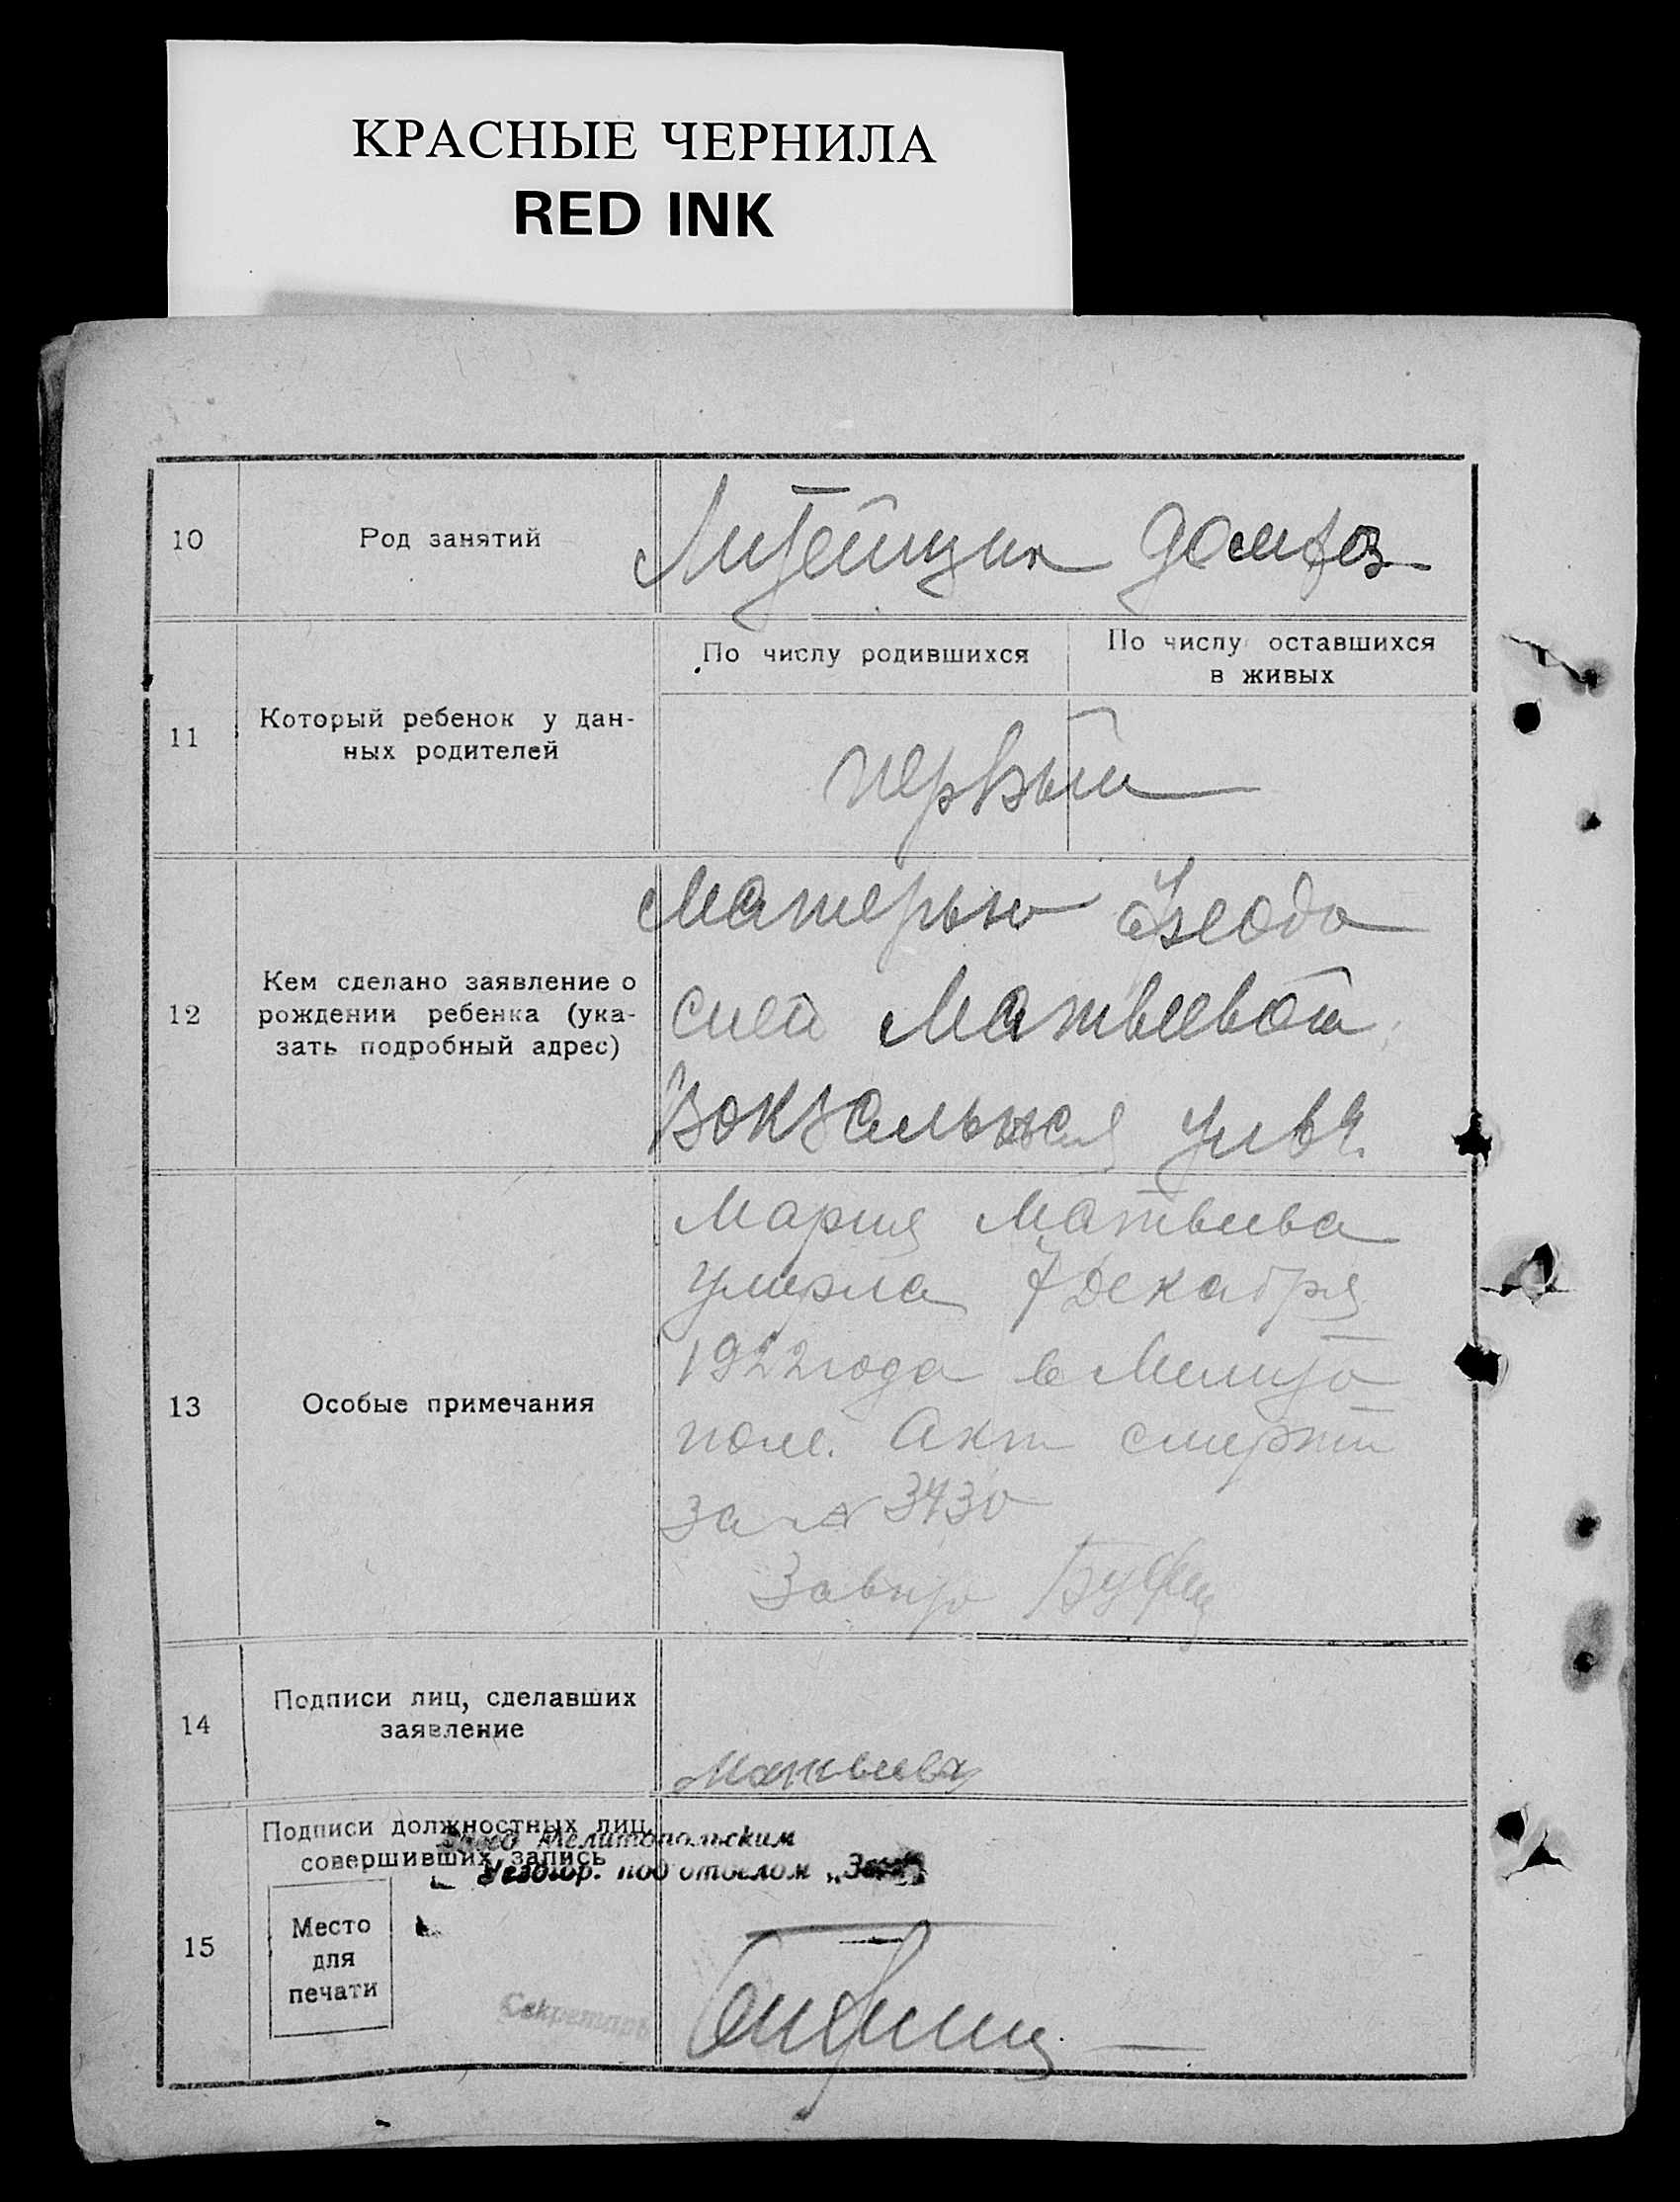 КРАСНЫЕ ЧЕРНИЛА
RED INK
10
Род занятий
Литейщик
По числу родившихся
По числу оставшихся
в живых
11
Который ребенок у дан-
ных родителей
первый
12
Кем сделано заявление о
рождении ребенка (ука-
зать подробный адрес)
Матерью Феодо
сией Матвеевой
Вокзальная ул
13
Особые примечания
Мария Матвеева
умерла 7 Декабря
1922 года в Мелито
поле. Акт смерти
за № 3430
14
Подписи лиц, сделавших
заявление
Матвеева
15
Подписи должностных лиц,
совершивших запись
Мелитопольским
под отделом
Место
для
печати
Секретарь